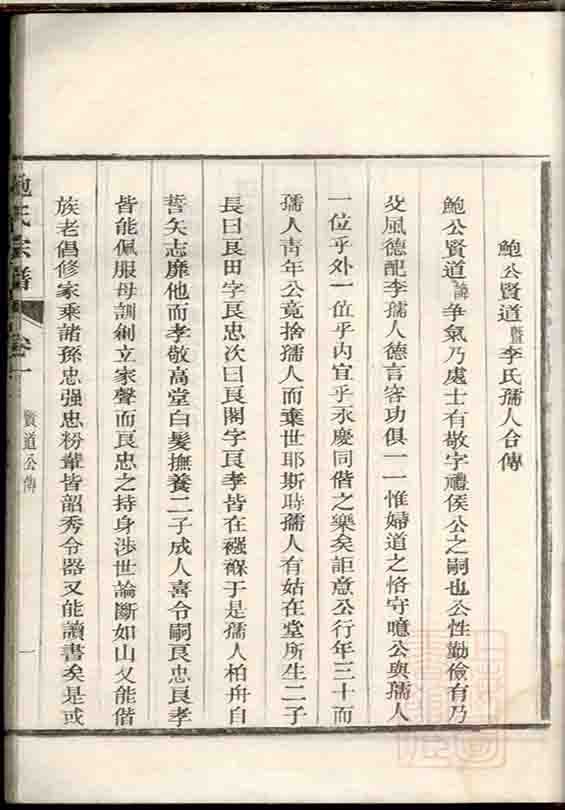 鮑公賢道暨李氏孺人合傳
鮑公賢道諱爭氣乃處士有敬字禮侯公之嗣也公性勤儉有乃
父風德配李孺人德言容功俱一一惟婦道之恪守噫公與孺人
一位乎外一位乎內宜乎永慶同偕之樂矣詎意公行年三十而
孺人青年公竟捨孺人而棄世耶斯時孺人有姑在堂所生二子
長曰良田字良忠次曰良閣字良孝皆在襁褓于是孺人柏舟自
誓矢志靡他而孝敬高堂白髮撫養二子成人喜令嗣良忠良孝
皆能佩服母訓創立家聲而良忠之持身涉世論斷如山又能偕
族老倡修家乘諸孫忠强忠粉輩皆韶秀令器又能讀書矣是或
鮑氏宗譜
卷一
賢道公傳
一